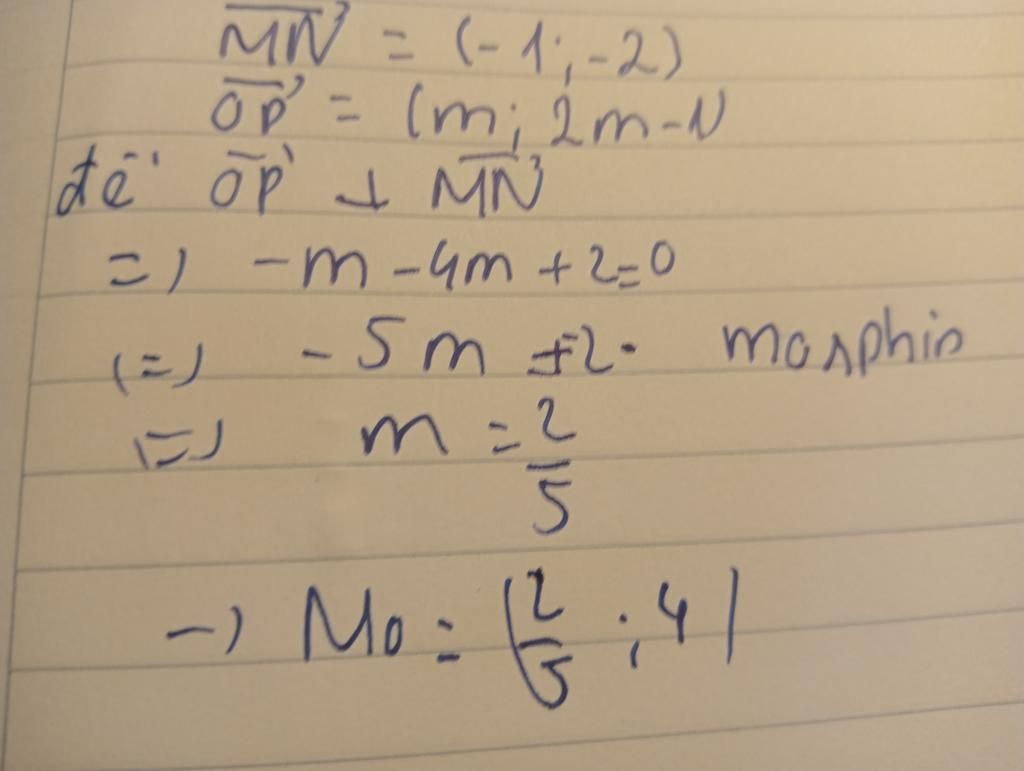 MN = (-1; -2)
OP = (m; 2m-1)
để OP ⊥ MN
=) -m - 4m + 2 = 0
(=) -5m +2. morphin
(=) m = 2/5
-) Mo = (2/5 ; 4)